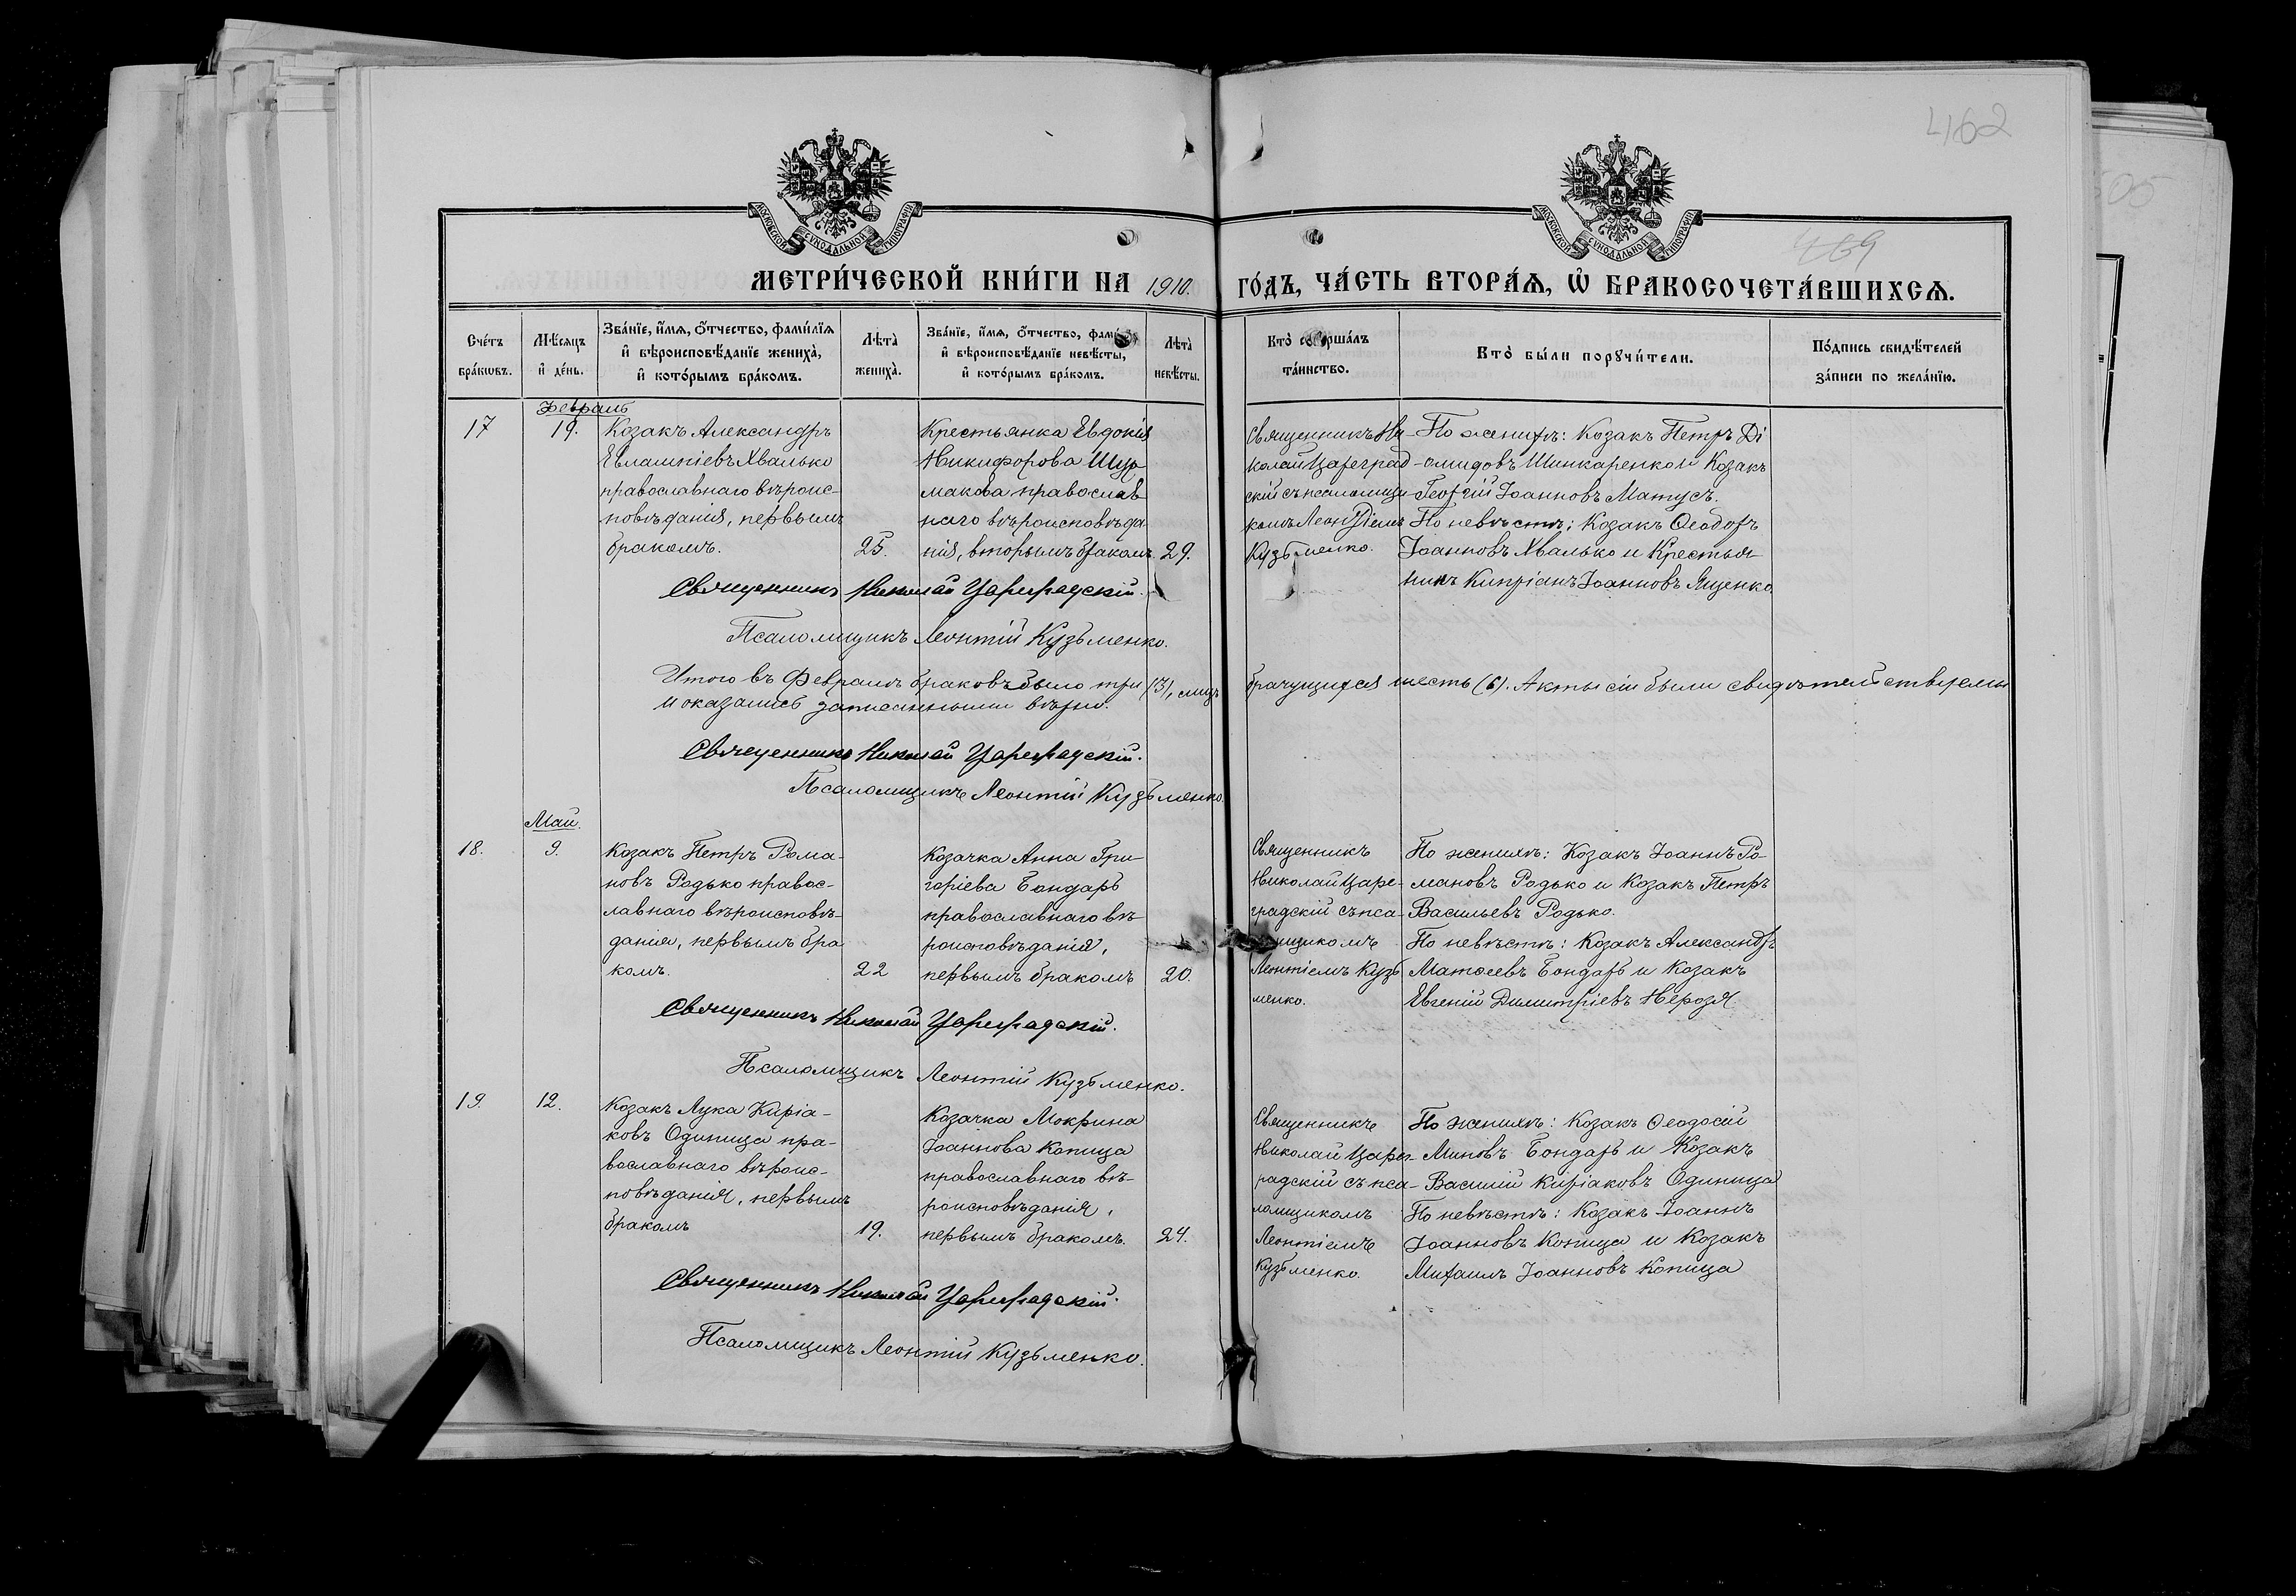 462
505
469
МОСКОВСКОЙ СУНОДАЛЬНОЙ ТИПОГРАФІИ
МОСКОВСКОЙ СУНОДАЛЬНОЙ ТИПОГРАФІИ
МЕТРИ́ЧЕСКОЙ КНИ́ГИ НА 1910. ГО́ДЪ, ЧА́СТЬ ВТОРА́Ѧ, Ѽ БРАКОСОЧЕТА́ВШИХСѦ.
Сче́тъ бра́кѡвъ.
Мѣ́сяцъ и҆ де́нь.
Зва́нїе, и҆́мѧ, ѻ҆́тчество, фами́лїѧ
и҆ вѣроисповѣ́данїе жениха̀,
и҆ кото́рымъ бра́комъ.
Лѣ́та̀ жениха̀.
Зва́нїе, и҆́мѧ, ѻ҆́тчество, фами́
и҆ вѣроисповѣ́данїе невѣ́сты,
и҆ кото́рымъ бра́комъ.
Лѣ́та̀ невѣ́сты.
Кто̀ соверша́лъ
та́инство.
Кто̀ бы́ли порꙋчи́тели.
По́дпись свидѣ́телей
за́писи по жела́нїю.
Февраль
17
19.
Козакъ Александръ
Евлампіевъ Хвалько
православнаго вѣроис-
повѣданія, первымъ
бракомъ.
25.
Крестьянка Евдокія
Никифорова Шур
макова православ
наго вѣроисповѣда
нія, вторымъ бракомъ.
29.
Священникъ Ни-
колай Цареград-
скій съ псаломщи
комъ Леонтіемъ
Кузьменко.
По женихѣ: Козакъ Петръ Ді
омидовъ Шинкаренко и Козакъ
Георгій Іоанновъ Матусъ.
По невѣстѣ: Козакъ Ѳеодоръ
Іоанновъ Хвалько и Крестья-
нинъ Кипріанъ Іоанновъ Яценко.
Священникъ Николай Цареградскій.
Псаломщикъ Леонтій Кузьменко.
Итого въ Февралѣ браковъ было три (3), лицъ брачущихся шесть (6). Акты сіи были свидѣтельствуемы
и оказались записанными вѣрно.
Священникъ Николай Цареградскій.
Псаломщикъ Леонтій Кузьменко.
Май.
18.
9.
Козакъ Петръ Рома-
новъ Родько правос-
лавнаго вѣроисповѣ-
данія, первымъ бра
комъ.
22
Козачка Анна Гри-
горіева Бондарь
православнаго вѣ-
роисповѣданія,
первымъ бракомъ
20.
Священникъ
Николай Царе-
градскій съ пса-
ломщикомъ
Леонтіемъ Кузь
менко.
По женихѣ: Козакъ Іоаннъ Ро-
мановъ Родько и Козакъ Петръ
Васильевъ Родько.
По невѣстѣ: Козакъ Александръ
Матѳеевъ Бондарь и Козакъ
Евгеній Димитріевъ Нерозя.
Священникъ Николай Цареградскій.
Псаломщикъ Леонтій Кузьменко.
19.
12.
Козакъ Лука Киріа-
ковъ Одиница пра-
вославнаго вѣроис-
повѣданія, первымъ
бракомъ
19.
Козачка Мокрина
Іоаннова Копица
православнаго вѣ-
роисповѣданія,
первымъ бракомъ.
24.
Священникъ
Николай Царег-
радскій съ пса-
ломщикомъ
Леонтіемъ
Кузьменко.
По женихѣ: Козакъ Ѳеодосій
Миновъ Бондарь и Козакъ
Василій Киріаковъ Одиница
По невѣстѣ: Козакъ Іоаннъ
Іоанновъ Копица и Козакъ
Михаилъ Іоанновъ Копица
Священникъ Николай Цареградскій.
Псаломщикъ Леонтій Кузьменко.